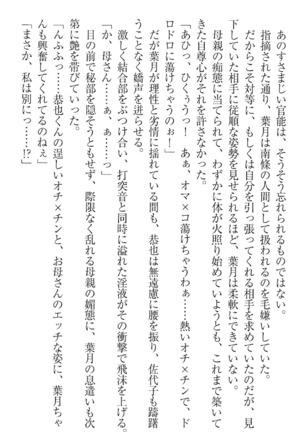 あのすさまじい官能は、そうそう忘れられるものではない。
指摘された通り、葉月は南條の人間として扱われるのを毛嫌いしていた。
だからこそ対等に、もしくは自分を引っ張ってくれる相手を求めていたのだが、見
下していた相手に従順な姿勢を見せられるほど、葉月は柔軟にできていない。
母親の痴態に当てられて、わずかに体が火照り始めていようとも、これまで築いて
きた自尊心がそれを許さなかった。
「あひっ、ひくぅうっ！　あぁ、オマ×コ蕩けちゃうわぁ……熱いオチ×チンで、ド
ロドロに蕩けちゃうのぉ！」
だが葉月が理性と劣情に揺れている間も、恭也は無遠慮に腰を振り、佐代子も躊躇
うことなく嬌声を迸らせる。
激しく結合部をぶつけ合い、打突音と同時に溢れた淫液がその衝撃で飛沫を上げる。
「か、母さん……ぁ、ぁ……っ」
目の前で秘部を隠そうともせず、際限なく乱れる母親の媚態に、葉月の息遣いも次
第に艶を帯びていった。
「んふふっ……恭也くんの逞しいオチ×チンと、お母さんのエッチな姿に、葉月ちゃ
んも興奮してくれてるのねぇ」
「まさか、私は別に……っ!?」